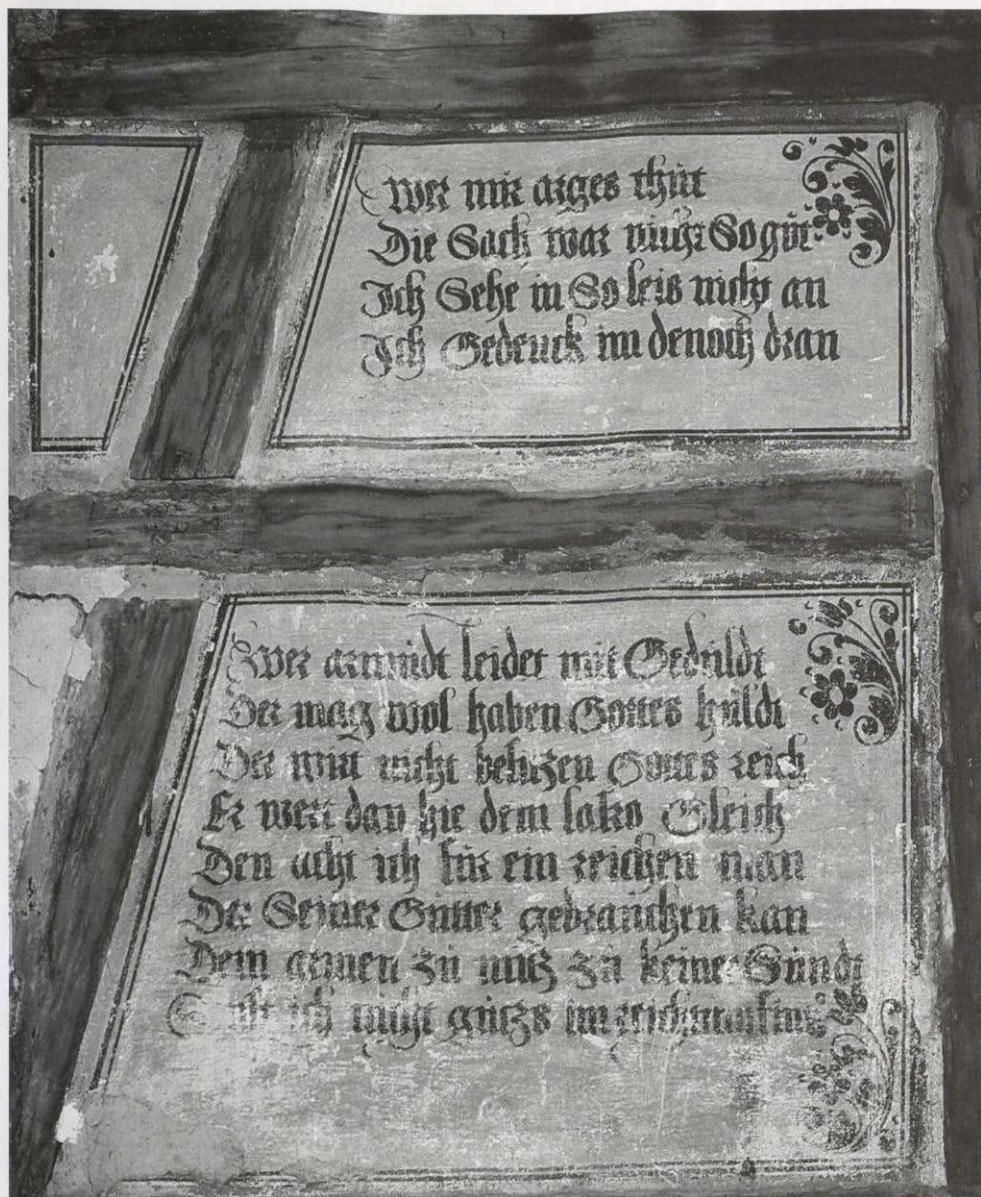 Wer mir arges thut
Die Sach war nicht So gut
Ich Sehe in So leis nicht an
Ich Gedenck im denoch dran
Wer armudt leidet mit Gedüldt
Der mag wol haben Gottes hüldt
Der wirt nicht besitzen Gottes reich
Er wert dan hie dem Gleich
Den acht ich für ein reichen man
Der Seiner Gütter gebrauchen kan
Dem armen zu nutz zu keiner Sündt
ich nicht gutzs im